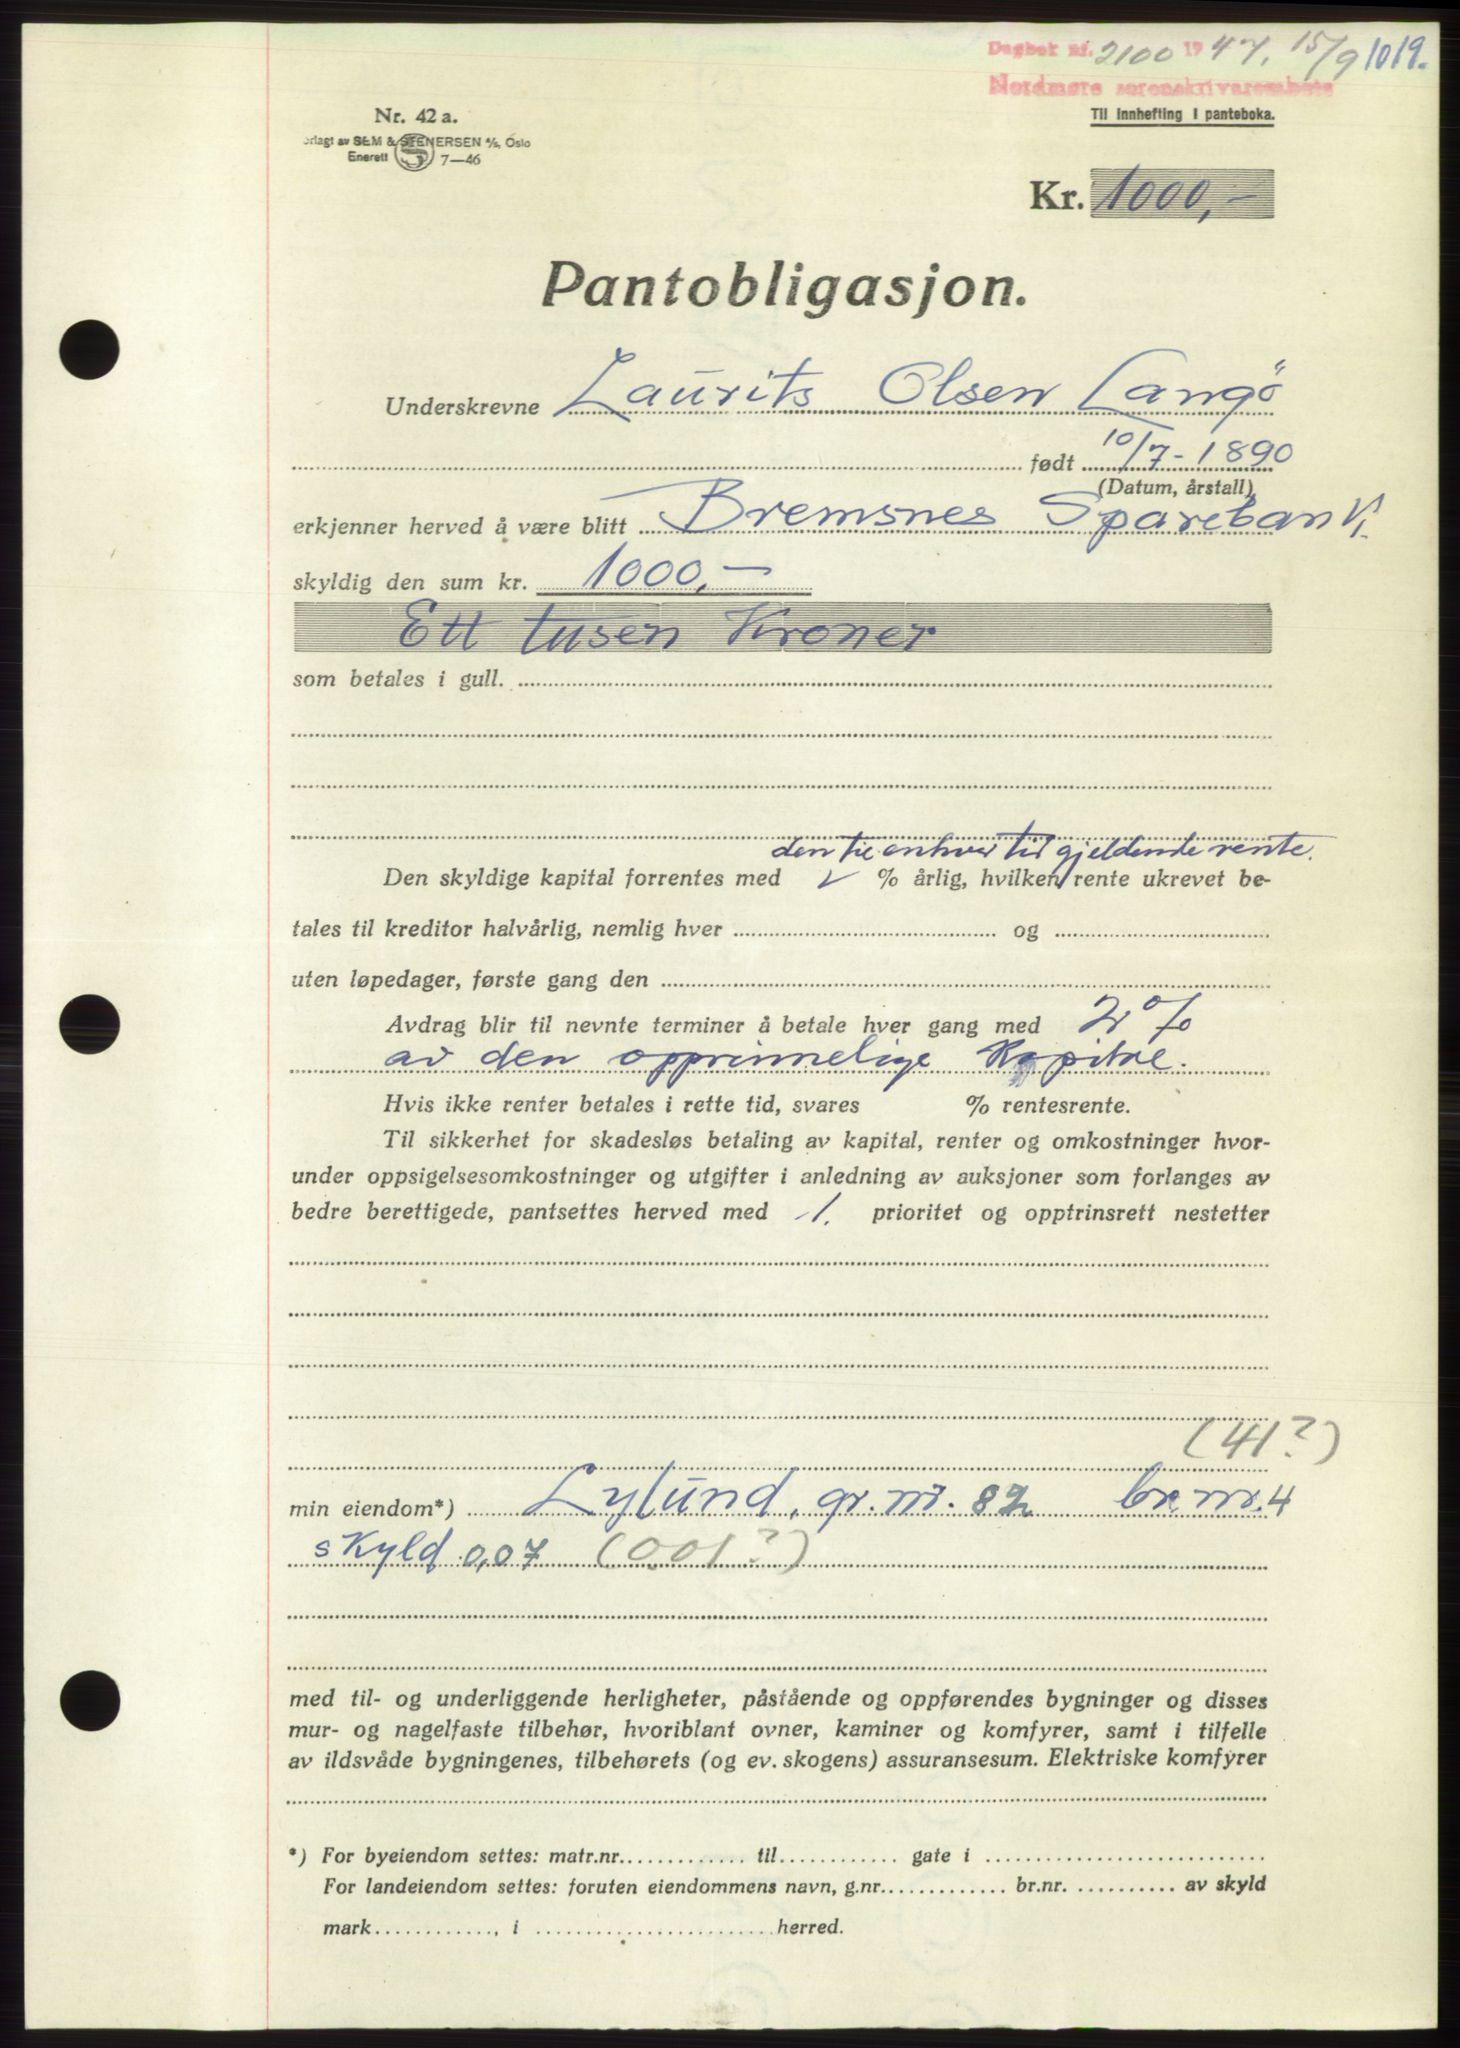 Dagbok nr. 2100 1947, 15/9 1019.
Nordmøre sorenskrivarembete
Til innhefting i panteboka.
Nr. 42 a.
orlagt av SEM & STENERSEN A/S, Oslo
Enerett S 7—46
Kr. 1000,-
Pantobligasjon.
Underskrevne Laurits Olsen Langö
født 10/7-1890
(Datum, årstall)
erkjenner herved å være blitt Bremsnes Sparebank.
skyldig den sum kr. 1000,-
Ett tusen Kroner
som betales i gull.
den til enhver tid gjeldende rente.
Den skyldige kapital forrentes med % årlig, hvilken rente ukrevet be-
tales til kreditor halvårlig, nemlig hver og
uten løpedager, første gang den
Avdrag blir til nevnte terminer å betale hver gang med 2%
av den opprinnelige Kapital.
Hvis ikke renter betales i rette tid, svares % rentesrente.
Til sikkerhet for skadesløs betaling av kapital, renter og omkostninger hvor-
under oppsigelsesomkostninger og utgifter i anledning av auksjoner som forlanges av
bedre berettigede, pantsettes herved med 1. prioritet og opptrinsrett nestetter
(41?)
min eiendom*) Lylund, gr. nr. 82 br. nr. 4
skyld 0,07 (0.01?)
med til- og underliggende herligheter, påstående og oppførendes bygninger og disses
mur- og nagelfaste tilbehør, hvoriblant ovner, kaminer og komfyrer, samt i tilfelle
av ildsvåde bygningenes, tilbehørets (og ev. skogens) assuransesum. Elektriske komfyrer
*) For byeiendom settes: matr.nr. til gate i
For landeiendom settes: foruten eiendommens navn, g.nr. br.nr. av skyld
mark , i herred.